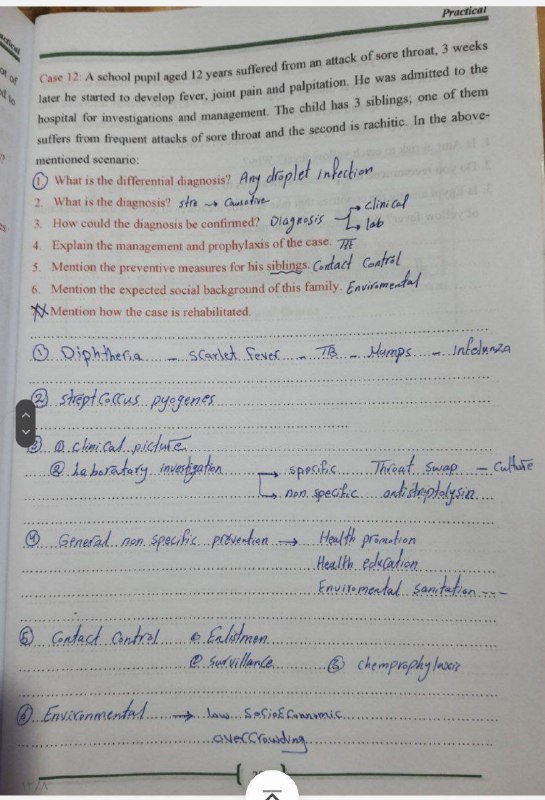 Practical
Case 12: A school pupil aged 12 years suffered from an attack of sore throat, 3 weeks
later he started to develop fever, joint pain and palpitation. He was admitted to the
hospital for investigations and management. The child has 3 siblings; one of them
suffers from frequent attacks of sore throat and the second is rachitic. In the above-
mentioned scenario:
1. What is the differential diagnosis? Any droplet infection
2. What is the diagnosis? stre → Causative
3. How could the diagnosis be confirmed? Diagnosis → clinical
→ lab
4. Explain the management and prophylaxis of the case.
5. Mention the preventive measures for his siblings. Contact Control
6. Mention the expected social background of this family. Enviromental
Mention how the case is rehabilitated.
① Diphtheria - Scarlet Fever - TB - Mumps - Infelunza
② strept Coccus pyogenes
③ ① clinical picture
② Laboratary investigation → specific Throat Swap - Culture
→ non specific antistreptolysin
④ General non specific prevention → Health promotion
Health education
Enviromental Sanitation ---
⑤ Contact Control ① Enlistmen
② survillance ③ chemprophylaxis
⑥ Environmental → low SocioEconnomic
overCrowding